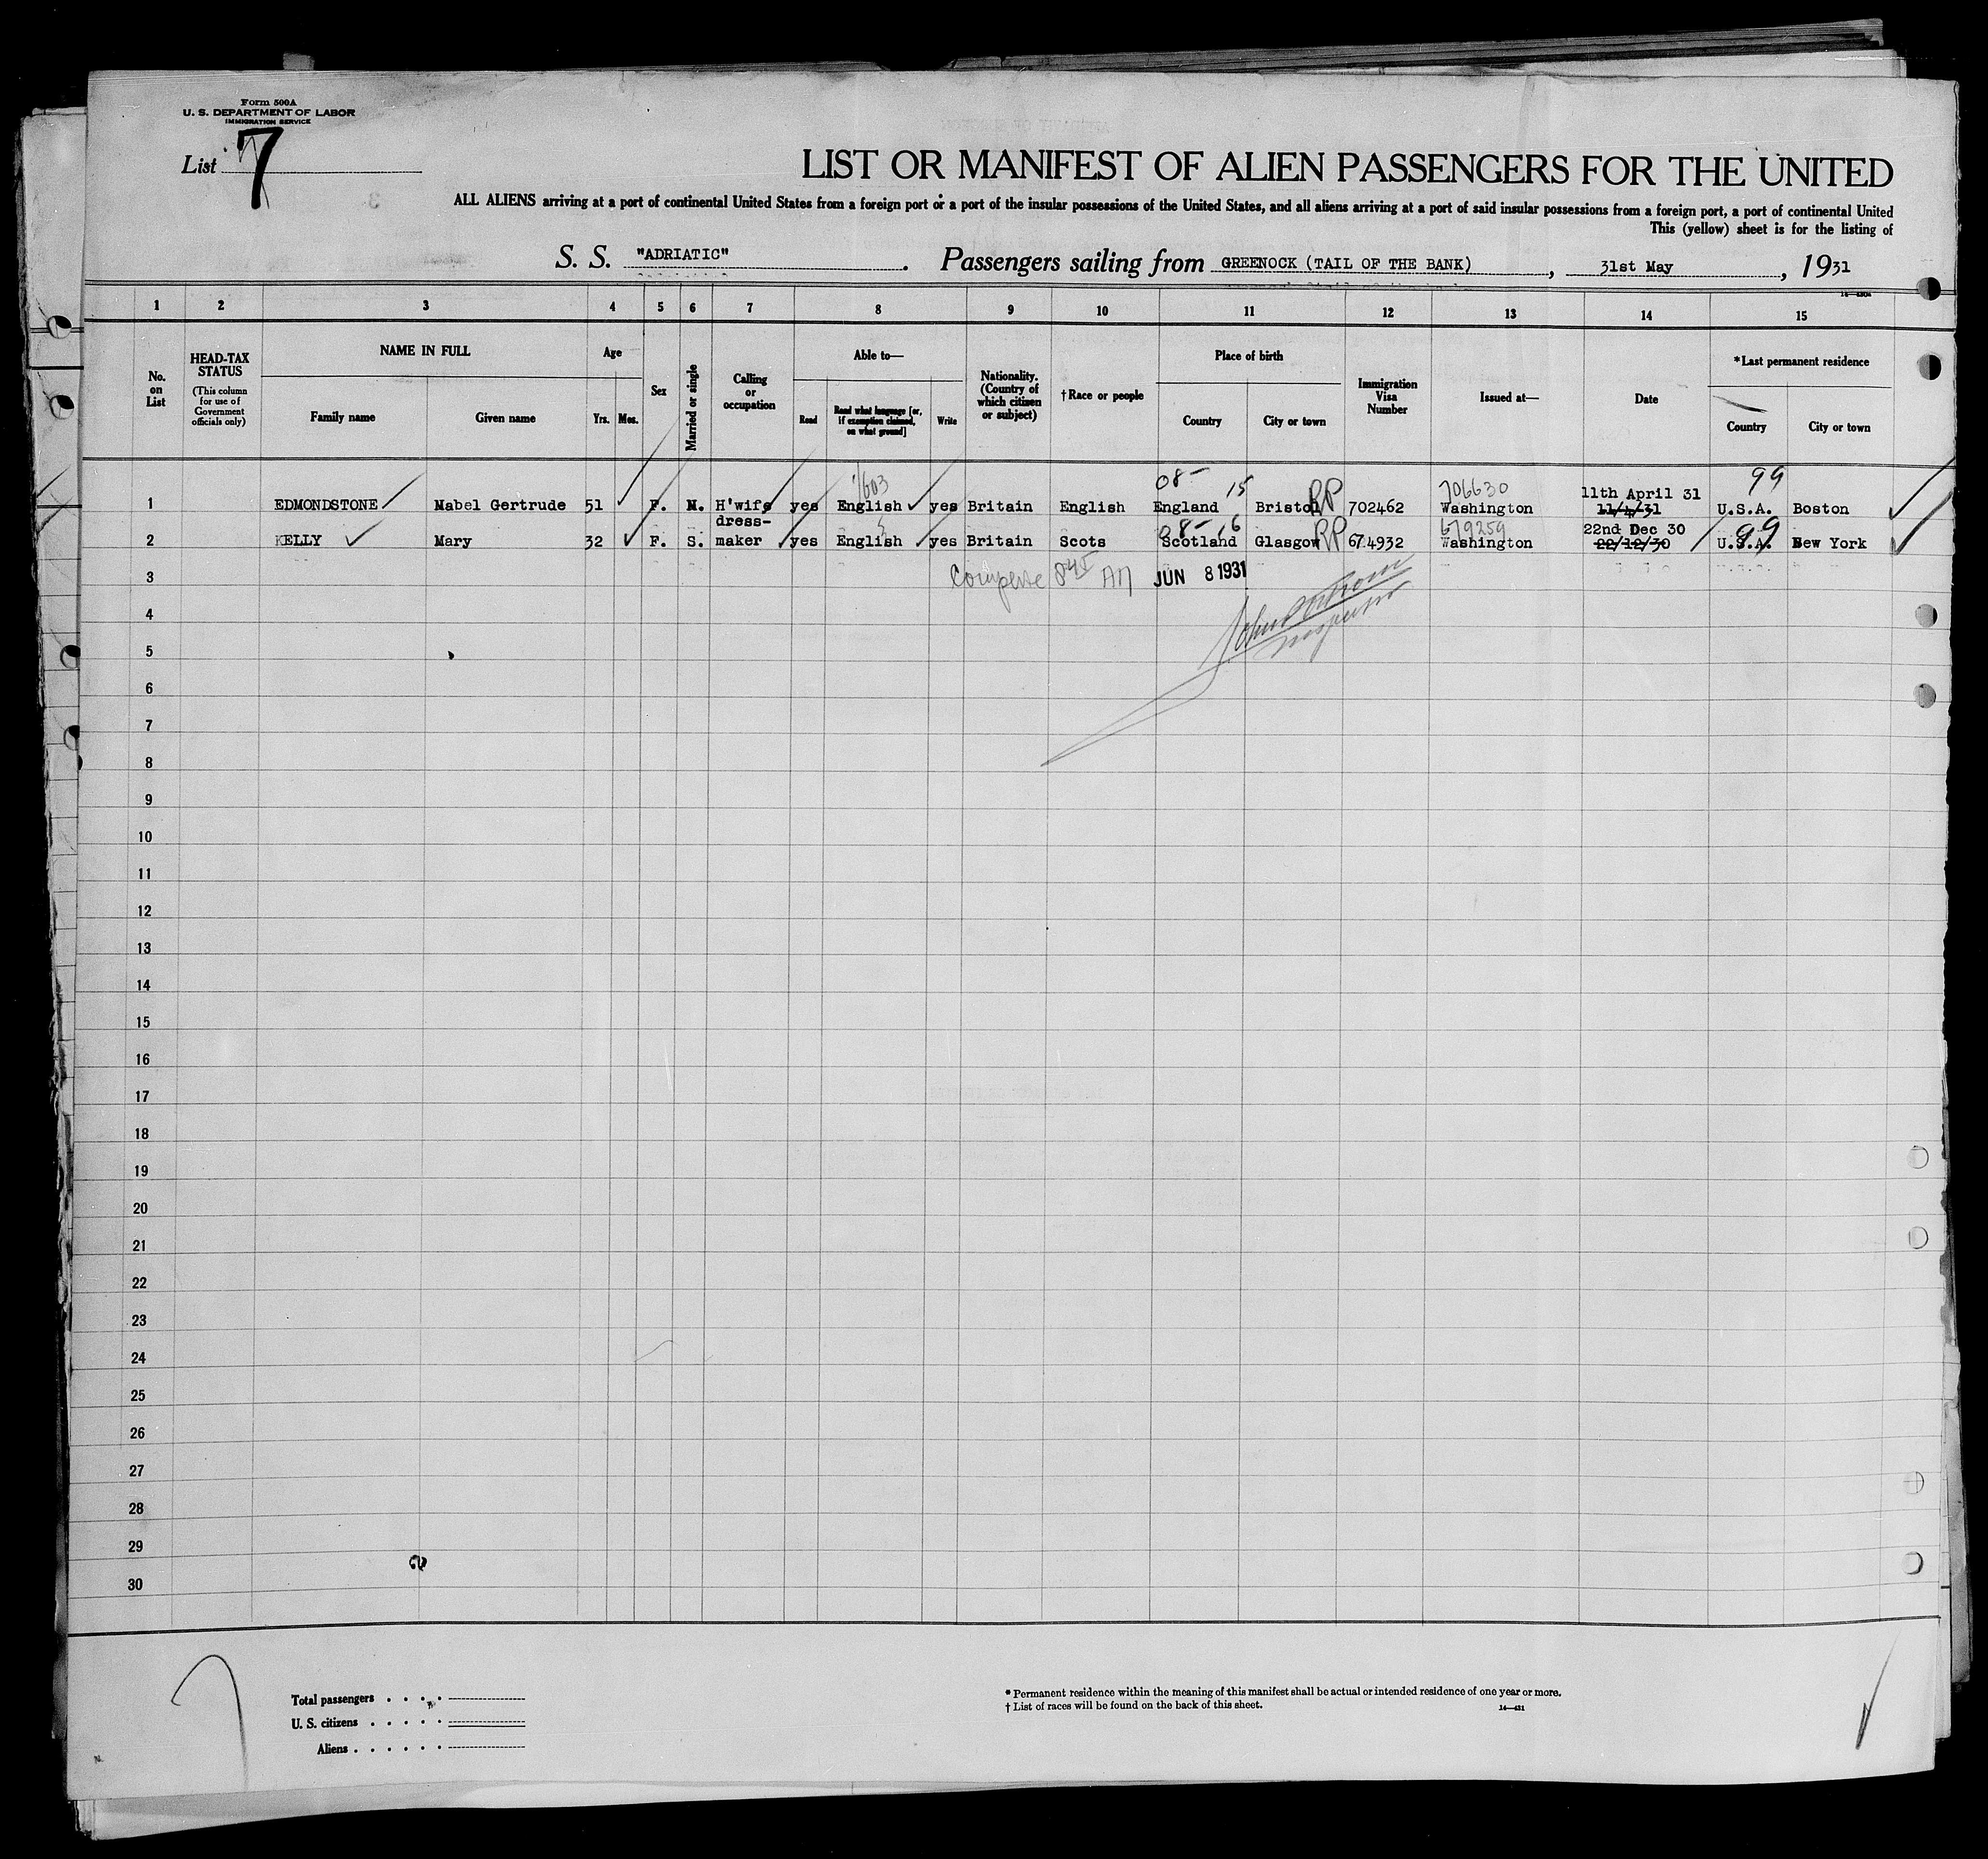 Form 500A
U. S. DEPARTMENT OF LABOR
IMMIGRATION SERVICE
List 7
LIST OR MANIFEST OF ALIEN PASSENGERS FOR THE UNITED
ALL ALIENS arriving at a port of continental United States from a foreign port or a port of the insular possessions of the United States, and all aliens arriving at a port of said insular possessions from a foreign port, a port of continental United
This (yellow) sheet is for the listing of
S. S. "ADRIATIC". Passengers sailing from GREENOCK (TAIL OF THE BANK), 31st May, 1931
1 2 3 4 5 6 7 8 9 10 11 12 13 14 15
No. on List
HEAD-TAX STATUS
(This column for use of Government officials only)
NAME IN FULL
Family name
Given name
Age
Yrs. Mos.
Sex
Married or single
Calling or occupation
Able to—
Read
Read what language [or, if exemption claimed, on what ground]
Write
Nationality. (Country of which citizen or subject)
†Race or people
Place of birth
Country
City or town
Immigration Visa Number
Issued at—
Date
*Last permanent residence
Country
City or town
08- 15 706630 99
1 EDMONDSTONE Mabel Gertrude 51 F. M. H'wife yes English yes Britain English England Bristol RP 702462 Washington 11th April 31 11/4/31 U.S.A. Boston
08- 16 679259 99
2 KELLY Mary 32 F. S. dress-maker yes English yes Britain Scots Scotland Glasgow RP 674932 Washington 22nd Dec 30 22/12/30 U.S.A. New York
3 JUN 8 1931
4 Inspector
5
6
7
8
9
10
11
12
13
14
15
16
17
18
19
20
21
22
23
24
25
26
27
28
29
30
Total passengers
U. S. citizens
Aliens
* Permanent residence within the meaning of this manifest shall be actual or intended residence of one year or more.
† List of races will be found on the back of this sheet.